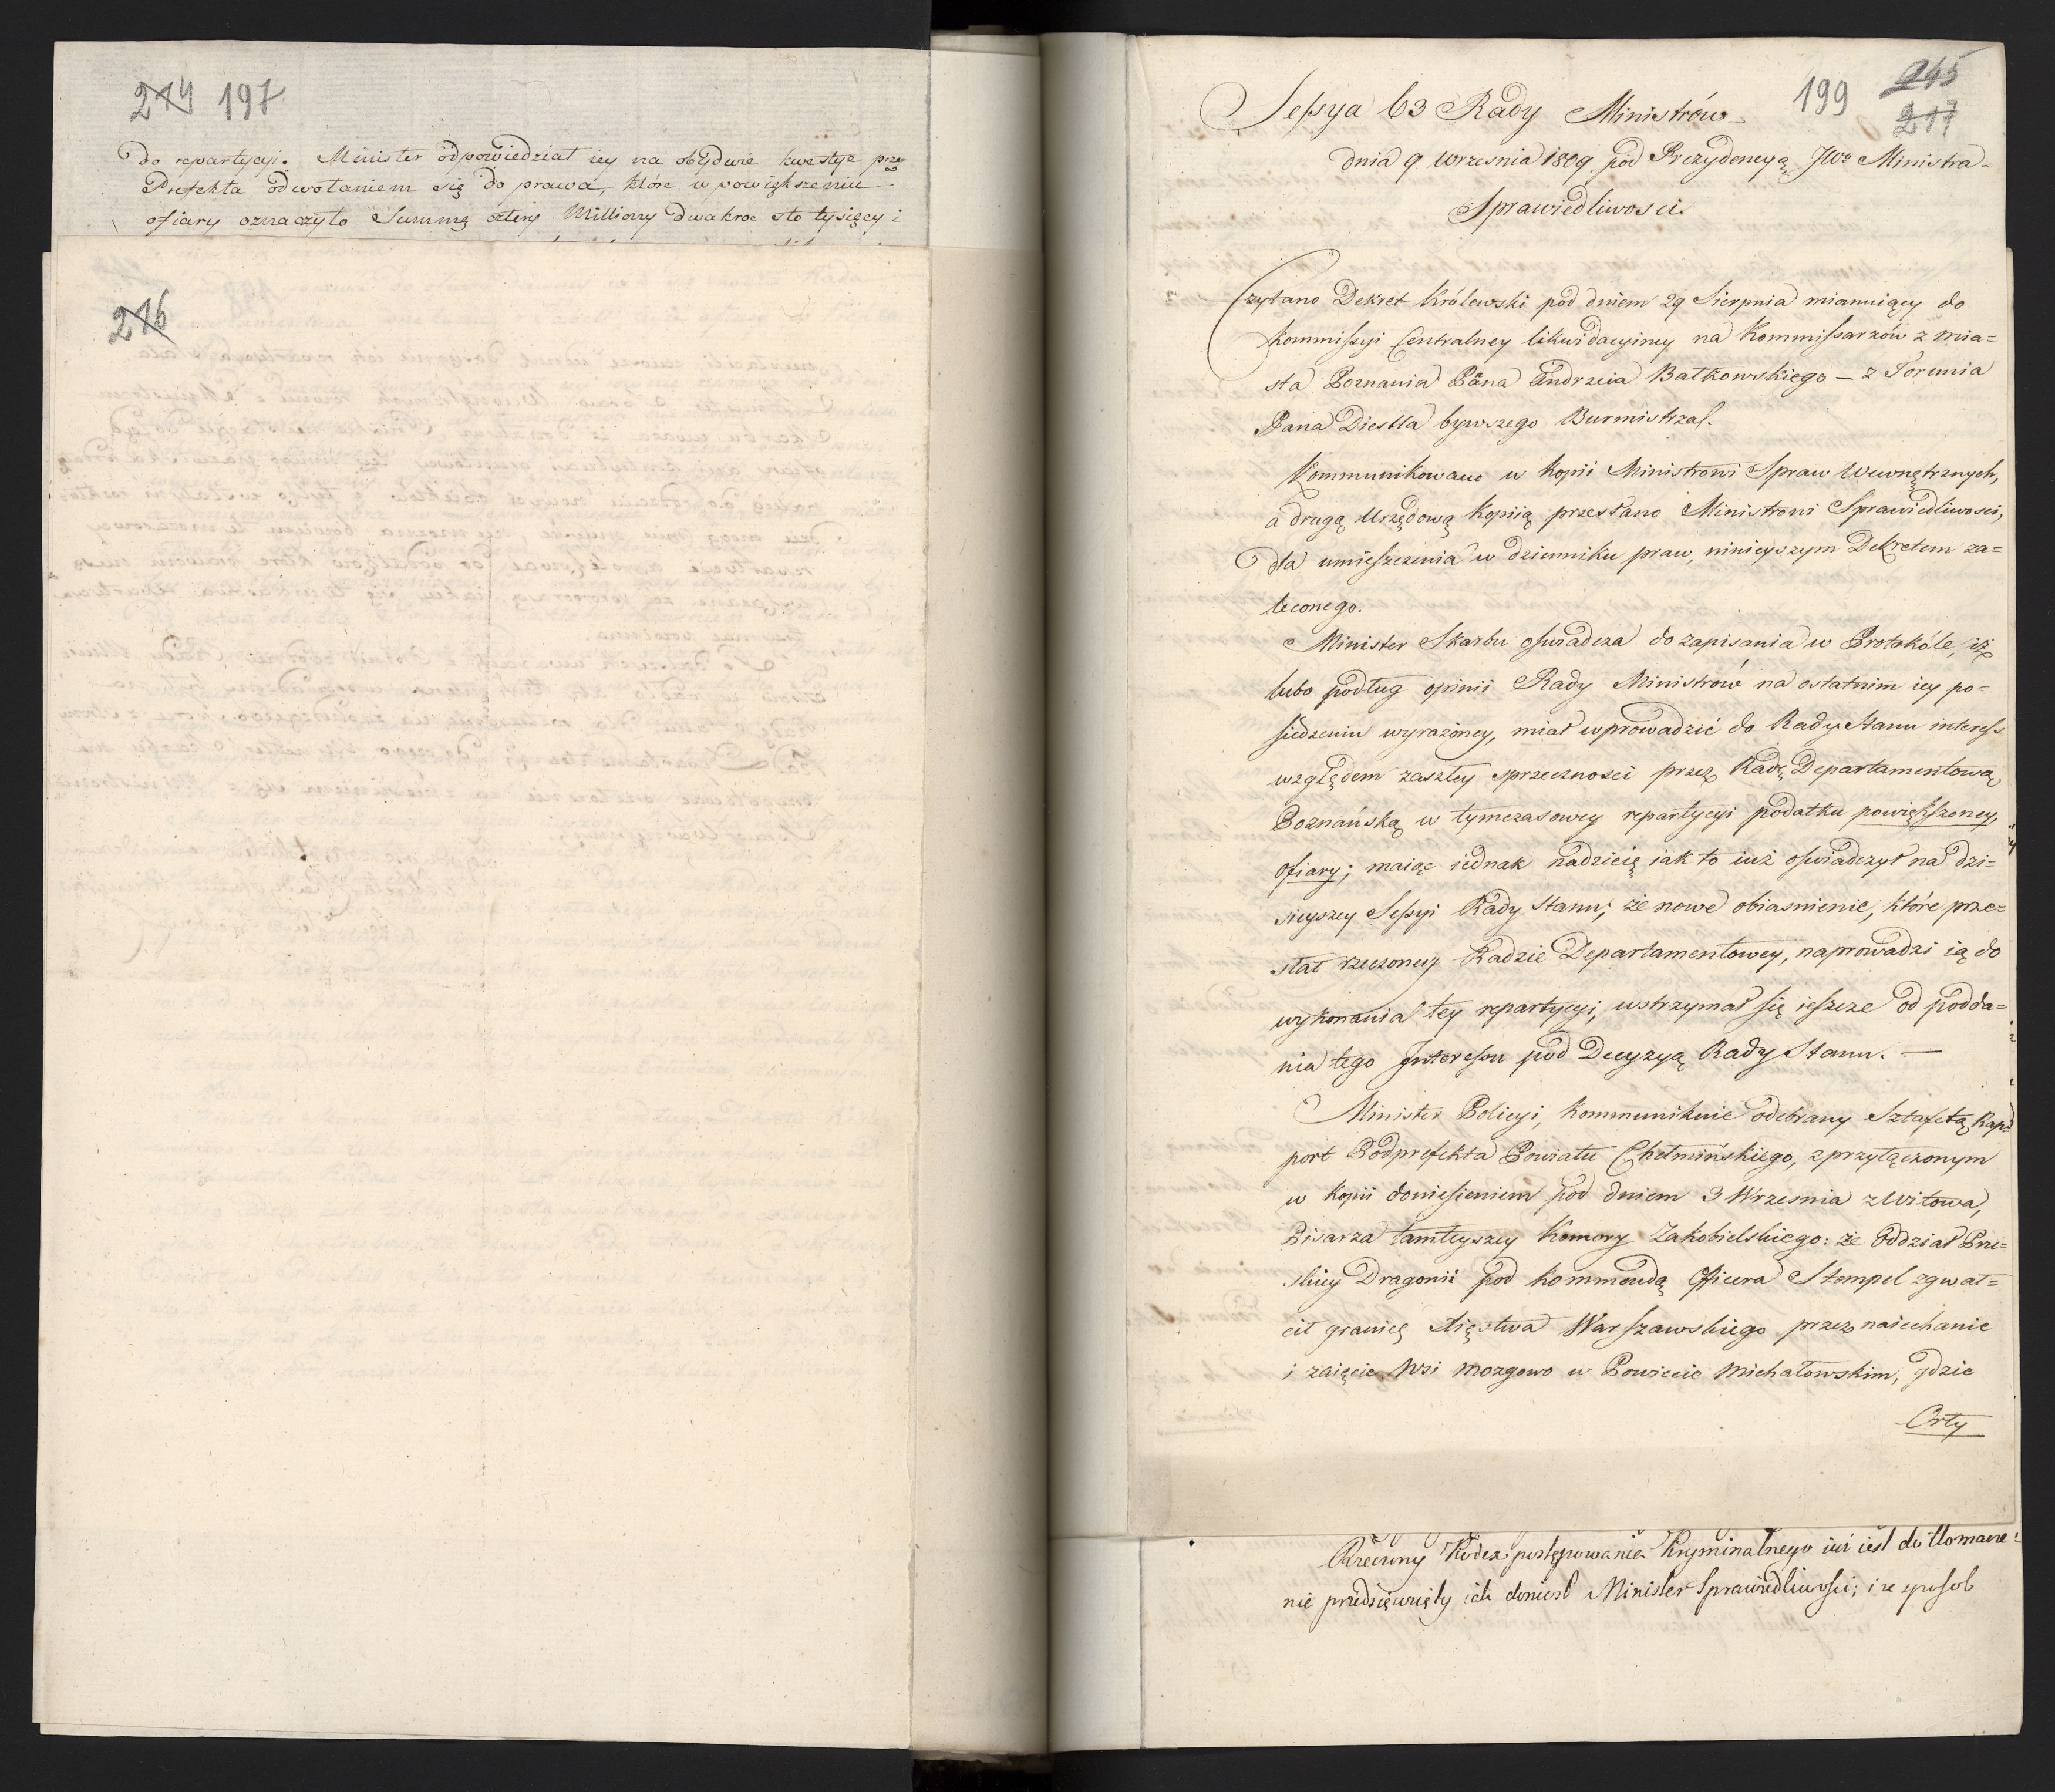 214 197
do repartycyi. Minister odpowiedział iey na obydwie kwestye przez
Prefekta odwołaniem się do prawa, które w powiększeniu
ofiary oznaczyło Summę cztery Milliony dwakroć sto tysięcy i
216
199 215
217
Sessya 63 Rady Ministrów
dnia 9 Września 1809 pod Prezydencyą JWo Ministra
Sprawiedliwosci.
Czytano Dekret Królewski pod dniem 29 Sierpnia mianuiący do
Kommissyi Centralney likwidacyiney na Kommissarzów z mia=
sta Poznania Pana Andrzeia Batkowskiego — z Torunia
Pana Diestla bywszego Burmistrza.
Kommunikowano w Kopii Ministrowi Spraw Wewnętrznych,
a drugą Urzędową Kopiią przesłano Ministrowi Sprawiedliwosci,
dla umieszczenia w dzienniku praw, ninieyszym Dekretem za=
leconego.
Minister Skarbu oswiadcza do zapisania w Protokóle, iż
lubo podług opinii Rady Ministrów na ostatnim iey po=
siedzeniu wyrażoney, miał wprowadzić do Rady Stanu interess
względem zaszłey sprzecznosci przez Radę Departamentową
Poznańską w tymczasowey repartycyi podatku powiększoney,
ofiary; maiąc iednak nadzieię iak to iuż oswiadczył na dzi=
sieyszey Sessyi Rady Stanu; że nowe obiasnienie, które prze=
słał rzeczoney Radzie Departamentowey, naprowadzi ią do
wykonania tey repartycyi, wstrzymał się ieszcze od podda=
nia tego Interessu pod Decyzyą Rady Stanu. —
Minister Policyi, Kommunikuie odebrany Sztafetą Rap=
port Podprefekta Powiatu Chełmińskiego, z przyłączonym
w Kopii doniesieniem pod dniem 3 Wrzesnia z Witowa,
Pisarza tamteyszey Komory Zakobielskiego: że Oddział Pru=
skiey Dragonii pod Kommendą Officera Stempel zgwał=
cił granicę Xięstwa Warszawskiego przez naiechanie
i zaięcie Wsi Mozgowo w Powiecie Michałowskim, gdzie
Orły
Rzeczony Kodex postępowania Kryminalnego iuż iest do tłomacze=
nie przedsięwzięty iak doniosł Minister Sprawiedliwości; i że sposob